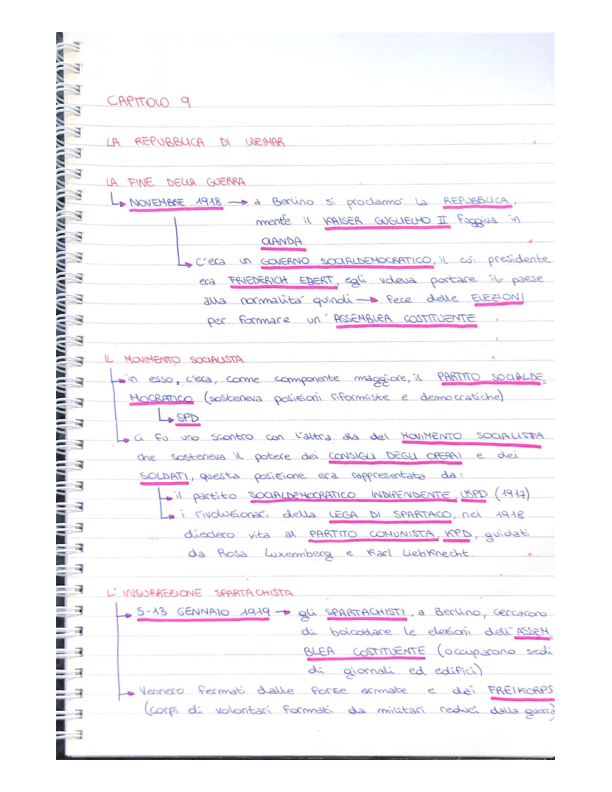 CAPITOLO 9
LA REPUBBLICA DI WEIMAR
LA FINE DELLA GUERRA
NOVEMBRE 1918 → a Berlino si proclamò la REPUBBLICA,
mentre il KAISER GUGLIELMO II fuggiva in
OLANDA
C'era un GOVERNO SOCIALDEMOCRATICO, il cui presidente
era FRIEDERICH EBERT, egli voleva portare il paese
alla normalità quindi → fece delle ELEZIONI
per formare un' ASSEMBLEA COSTITUENTE
IL MOVIMENTO SOCIALISTA
in esso, c'era, come componente maggiore, il PARTITO SOCIALDE-
MOCRATICO (sosteneva posizioni riformiste e democratiche)
SPD
ci fu uno scontro con l'altra ala del MOVIMENTO SOCIALISTA
che sosteneva il potere dei CONSIGLI DEGLI OPERAI e dei
SOLDATI, questa posizione era rappresentata da:
il partito SOCIALDEMOCRATICO INDIPENDENTE, USPD (1917)
i rivoluzionari della LEGA DI SPARTACO, nel 1918
diedero vita al PARTITO COMUNISTA, KPD, guidati
da Rosa Luxemberg e Karl Liebknecht.
L'INSURREZIONE SPARTACHISTA
5-13 GENNAIO 1919 → gli SPARTACHISTI, a Berlino, cercarono
di boicottare le elezioni dell'ASSEM
BLEA COSTITUENTE (occuparono sedi
di giornali ed edifici)
Vennero fermati dalle forze armate e dai FREIKORPS
(corpi di volontari formati da militari reduci dalla guerra)